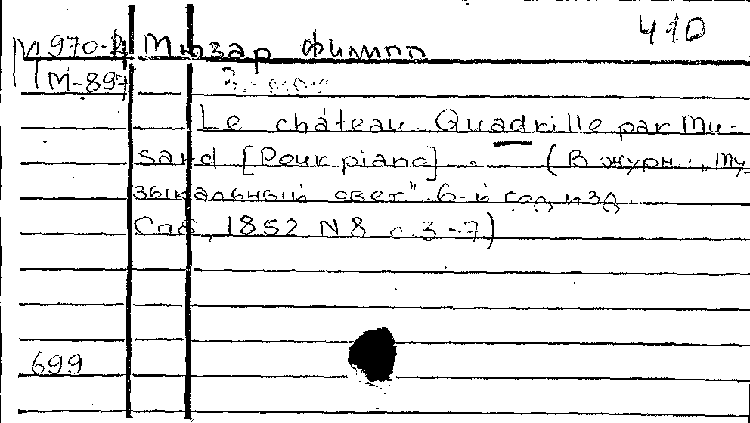 410
М 970-II Мюзар Филипп
М-897
Le château. Quadrille par Mu-
sard [Pour piano]. — (В журн. „Му
зыкальный свет" 6-й год изд
Спб, 1852 N 8 с. 3-7)
699